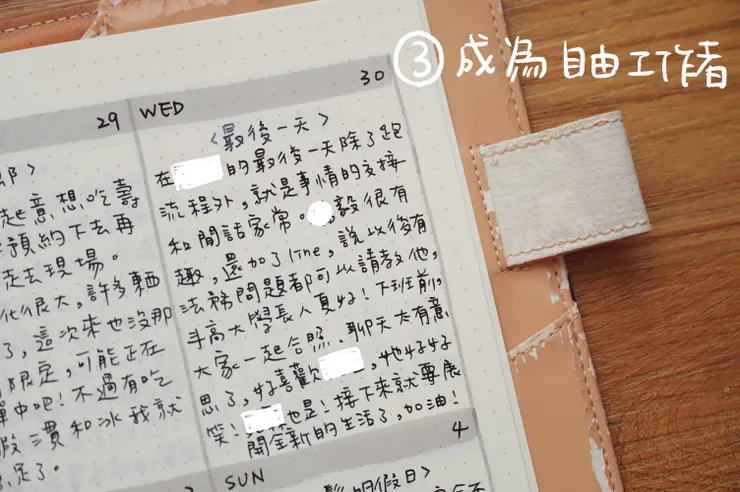 ③ 成為自由工作者
29
WED 30
<最後一天>
在 的最後一天除了跑
流程外，就是事情的交接
和閒話家常。 毅很有
趣，還加了line，說以後有
法務問題都可以請教他，
斗高大學長人真好！下班前，
大家一起合照、聊天太有意
思了，好喜歡 ，她好好
笑！ 也是！接下來就要展
開全新的生活了，加油！
起意想吃壽
預約下去再
走去現場。
化很大，許多東西
了，這次來也沒那
限定，可能正在
單中吧！不過有吃
漬和冰我就
足了。
4
SUN
的假日>